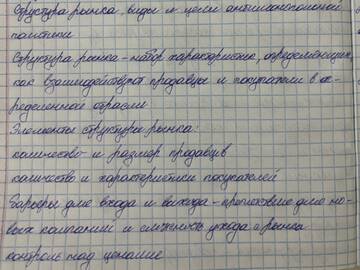 Структура рынка, виды и цели антимонопольной
политики
Структура рынка - набор характеристик, определяющих,
как взаимодействуют продавцы и покупатели в оп-
ределенной отрасли
Элементы структуры рынка:
количество и размер продавцов
количество и характеристики покупателей
Барьеры для входа и выхода - препятствие для но-
вых компании и сложность ухода с рынка
контроль над ценами